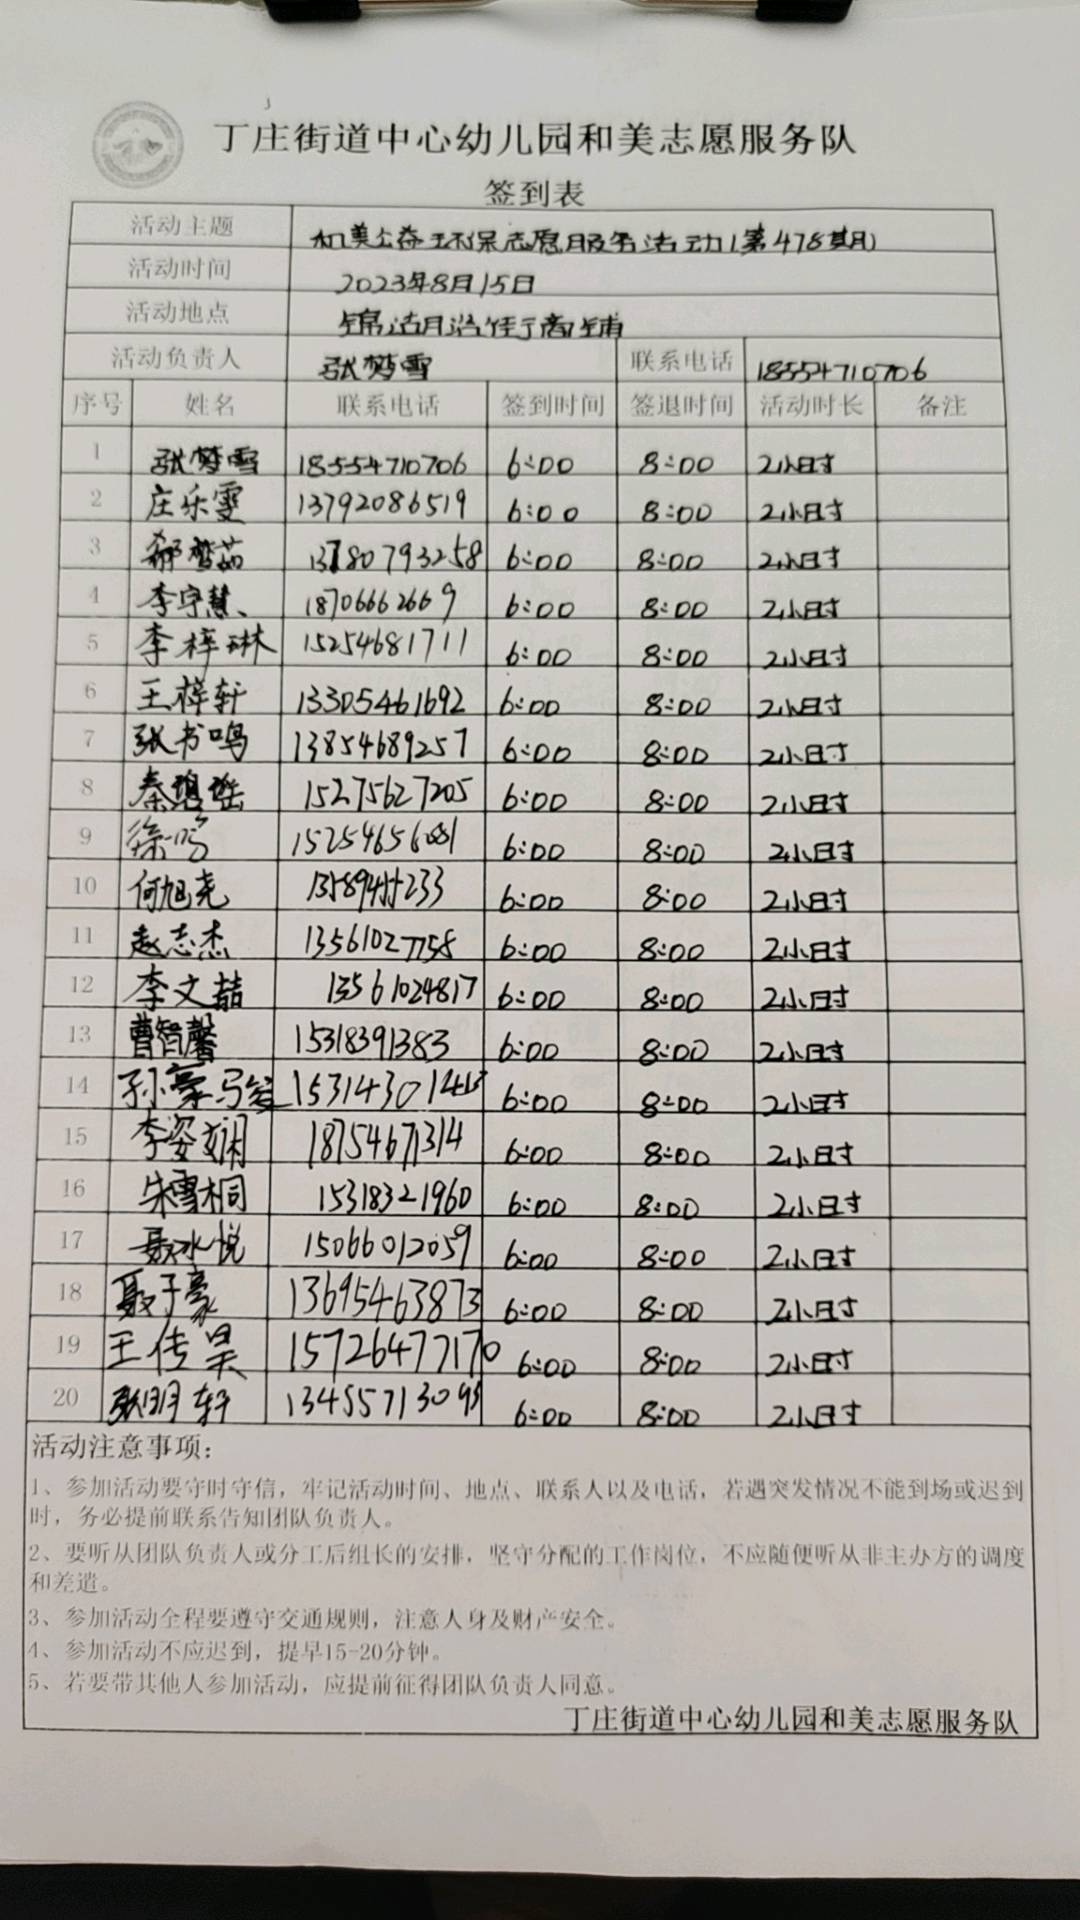 丁庄街道中心幼儿园和美志愿服务队
签到表
活动主题 和美公益环保志愿服务活动(第478期)
活动时间 2023年8月15日
活动地点
活动负责人 张梦雪 联系电话 18554710706
序号 姓名 联系电话 签到时间 签退时间 活动时长 备注
1 张梦雪 18554710706 6:00 8:00 2小时
2 庄乐雯 13792086519 6:00 8:00 2小时
3 6:00 8:00 2小时
4 李宇慧 18706662669 6:00 8:00 2小时
5 李梓琳 15254681711 6:00 8:00 2小时
6 王梓轩 13305461692 6:00 8:00 2小时
7 张书鸣 13854689257 6:00 8:00 2小时
8 15275627205 6:00 8:00 2小时
9 6:00 8:00 2小时
10 何旭尧 6:00 8:00 2小时
11 赵志杰 13561027758 6:00 8:00 2小时
12 李文喆 13561024817 6:00 8:00 2小时
13 曹智馨 15318391383 6:00 8:00 2小时
14 6:00 8:00 2小时
15 李姿娴 18754671314 6:00 8:00 2小时
16 朱雪桐 15318321960 6:00 8:00 2小时
17 聂冰悦 15066012059 6:00 8:00 2小时
18 聂子豪 13695463873 6:00 8:00 2小时
19 王传昊 15726477170 6:00 8:00 2小时
20 张明轩 6:00 8:00 2小时
活动注意事项：
1、参加活动要守时守信，牢记活动时间、地点、联系人以及电话，若遇突发情况不能到场或迟到
时，务必提前联系告知团队负责人。
2、要听从团队负责人或分工后组长的安排，坚守分配的工作岗位，不应随便听从非主办方的调度
和差遣。
3、参加活动全程要遵守交通规则，注意人身及财产安全。
4、参加活动不应迟到，提早15-20分钟。
5、若要带其他人参加活动，应提前征得团队负责人同意。
丁庄街道中心幼儿园和美志愿服务队